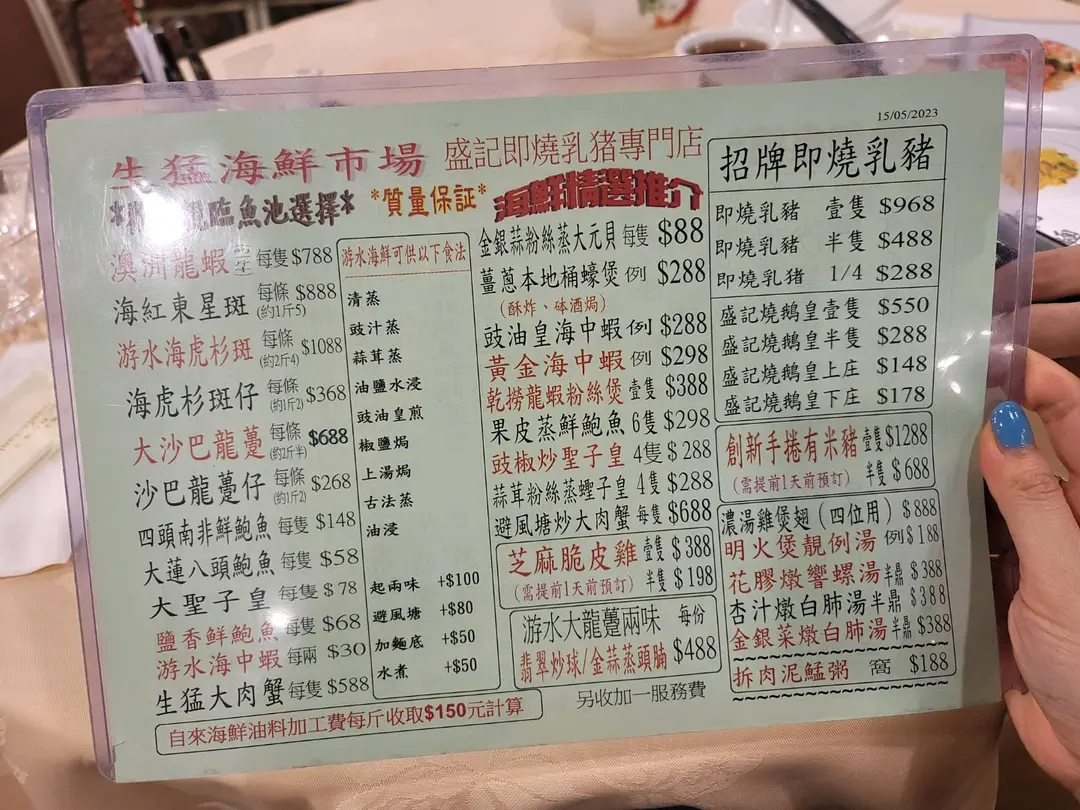 15/05/2023
生猛海鮮市場
盛記即燒乳猪專門店
臨魚池選擇*
*質量保証*
海鮮精選推介
澳洲龍蝦 每隻 $788
海紅東星斑 每條 (約1斤5) $888
游水海虎杉斑 每條 (約2斤4) $1088
海虎杉斑仔 每條 (約1斤2) $368
大沙巴龍躉 每條 (約2斤半) $688
沙巴龍躉仔 每條 (約1斤2) $268
四頭南非鮮鮑魚 每隻 $148
大蓮八頭鮑魚 每隻 $58
大聖子皇 每隻 $78
鹽香鮮鮑魚 每隻 $68
游水海中蝦 每兩 $30
生猛大肉蟹 每隻 $588
自來海鮮油料加工費每斤收取$150元計算
游水海鮮可供以下食法
清蒸
豉汁蒸
蒜茸蒸
油鹽水浸
豉油皇煎
椒鹽焗
上湯焗
古法蒸
油浸
起兩味 +$100
避風塘 +$80
加麵底 +$50
水煮 +$50
金銀蒜粉絲蒸大元貝 每隻 $88
薑蔥本地桶蠔煲 例 $288
(酥炸、砵酒焗)
豉油皇海中蝦 例 $288
黃金海中蝦 例 $298
乾撈龍蝦粉絲煲 壹隻 $388
果皮蒸鮮鮑魚 6隻 $298
豉椒炒聖子皇 4隻 $288
蒜茸粉絲蒸蟶子皇 4隻 $288
避風塘炒大肉蟹 每隻 $688
芝麻脆皮雞 壹隻 $388
(需提前1天前預訂) 半隻 $198
游水大龍躉兩味 每份
翡翠炒球/金蒜蒸頭腩 $488
另收加一服務費
招牌即燒乳豬
即燒乳豬 壹隻 $968
即燒乳豬 半隻 $488
即燒乳豬 1/4 $288
盛記燒鵝皇壹隻 $550
盛記燒鵝皇半隻 $288
盛記燒鵝皇上庄 $148
盛記燒鵝皇下庄 $178
創新手捲有米豬 壹隻 $1288
(需提前1天前預訂) 半隻 $688
濃湯雞煲翅(四位用) $888
明火煲靚例湯 例 $188
花膠燉響螺湯 半鼎 $388
杏汁燉白肺湯 半鼎 $388
金銀菜燉白肺湯 半鼎 $388
拆肉泥鯭粥 窩 $188